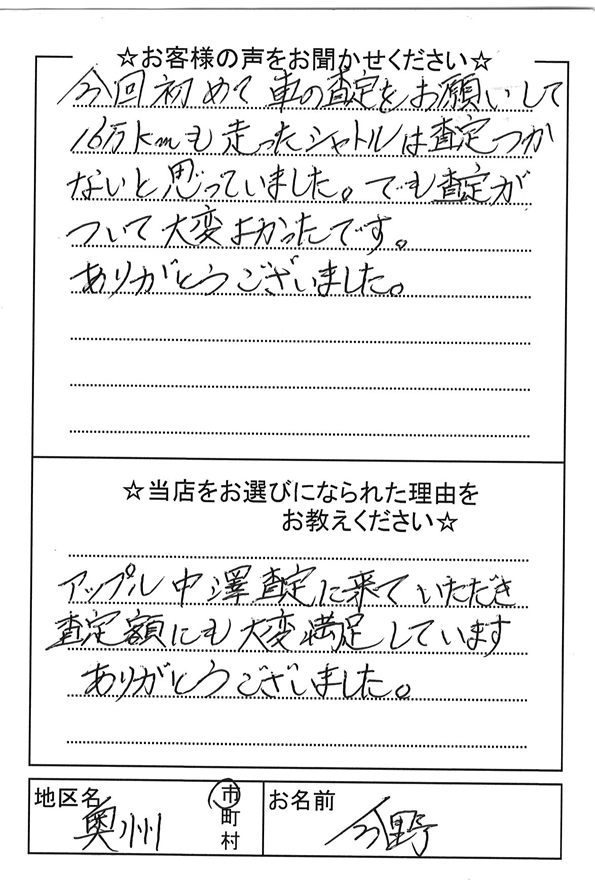 ☆お客様の声をお聞かせください☆
今回初めて車の査定をお願いして
16万kmも走ったシャトルは査定つか
ないと思っていました。でも査定が
ついて大変よかったです。
ありがとうございました。
☆当店をお選びになられた理由を
お教えください☆
アップル中澤査定に来ていただき
査定額にも大変満足しています
ありがとうございました。
地区名 奥州 市
町
村
お名前 今野